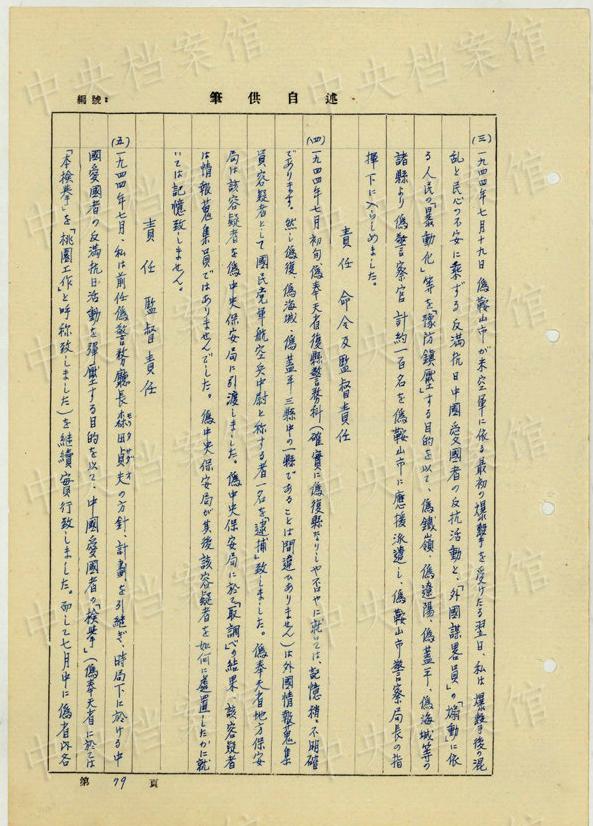 編號：
述自供筆
(三)一九四四年七月十九日偽鞍山市が米空軍に依る最初の爆撃を受けたる翌日、私は爆撃後の混
乱と民心の不安に乗ずる反満抗日中國愛國者の反抗活動と、「外國謀畧員」の「煽動」に依
る人民の「暴動化」等を「豫防鎮壓」する目的を以て、偽鐵嶺、偽遼陽、偽蓋平、偽海城等の
諸縣より偽警察官計約一百名を偽鞍山市に應援派遣し、偽鞍山市警察局長の指
揮下に入らしめました。
責任 命令及監督責任
(四)一九四四年七月初旬、偽奉天省復縣警務科(確實に偽復縣なりしや否やに就いては、記憶稍々不明確
でありますが、然し偽復、偽海城、偽蓋平三縣中の一縣であることは間違ひありません)は外國情報蒐集
員容疑者として國民党軍航空兵中尉と称する者一名を「逮捕」致しました。偽奉天省地方保安
局は該容疑者を偽中央保安局に引渡しました。偽中央保安局に於て「取調」べの結果、該容疑者
は情報蒐集員ではありませんでした。偽中央保安局が其後該容疑者を如何に處置したかに就
いては記憶致しません。
責任 監督責任
(五)一九四四年七月、私は前任偽警務廳長森田貞夫の方針、計畫を引継ぎ、時局下に於ける中
國愛國者の反満抗日活動を弾壓する目的を以て、中國愛國者の「検挙」(偽奉天省に於ては
「本検挙」を「桃園工作」と呼称致しました)を継續實行致しました。而して七月中に偽省内各
第 79 頁
中央档案馆